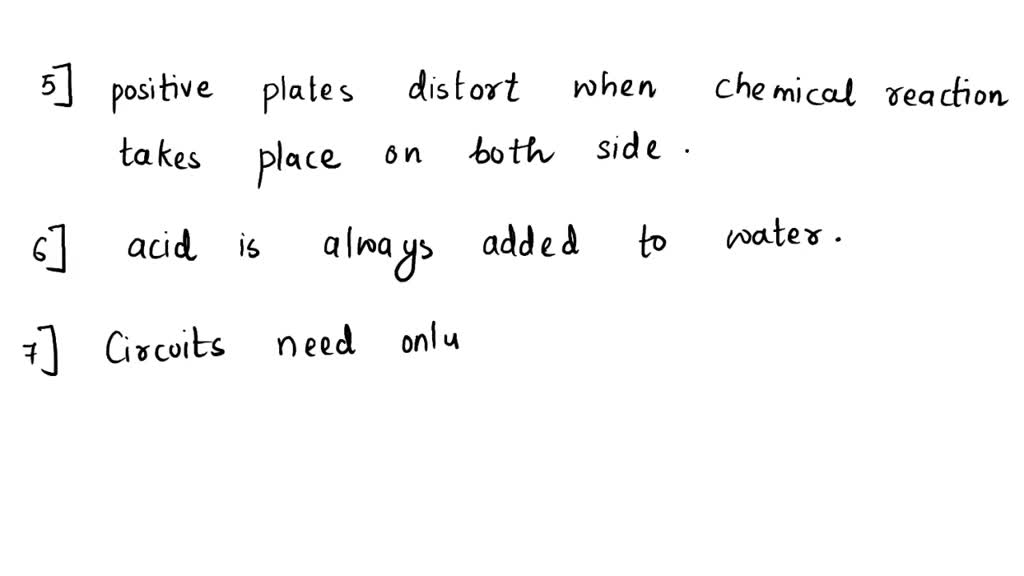 5] positive plates distort when chemical reaction
takes place on both side.
6] acid is always added to water.
7] Circuits need only